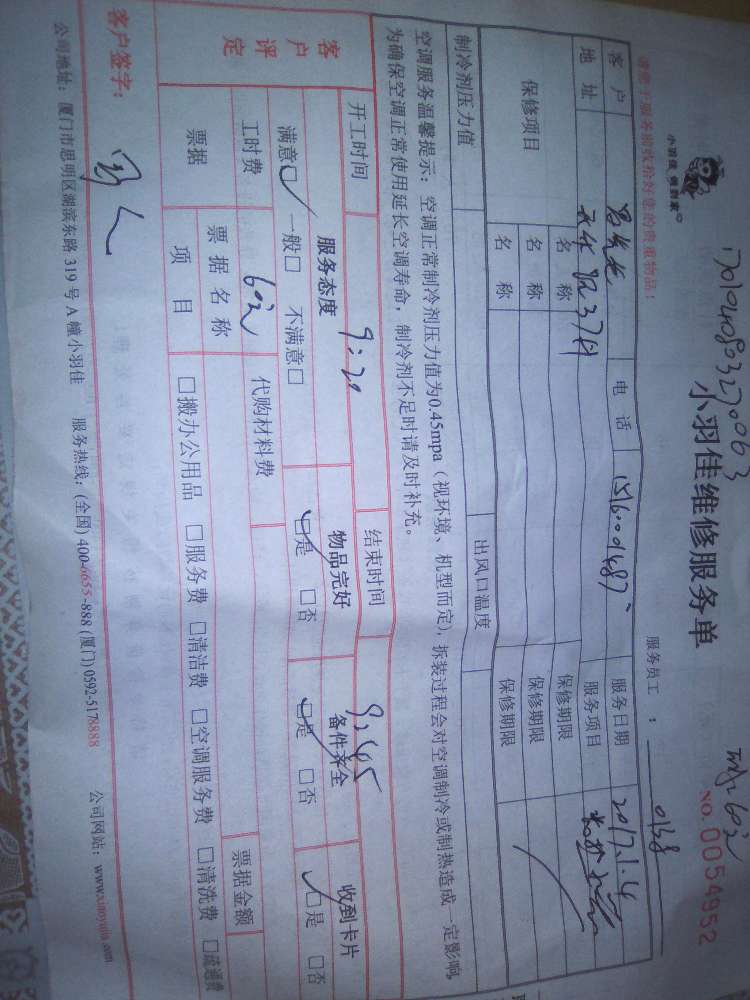 小羽佳 佣到家
小羽佳维修服务单
NO.0054952
请您于服务前收拾好您的贵重物品！
服务员工：0138
客户
电话
服务日期 2017.1.4
地址
服务项目
保修项目
名称
保修期限
名称
保修期限
名称
保修期限
制冷剂压力值
出风口温度
空调服务温馨提示：空调正常制冷剂压力值为0.45mpa（视环境、机型而定），拆装过程会对空调制冷或制热造成一定影响，
为确保空调正常使用延长空调寿命，制冷剂不足时请及时补充。
开工时间 9:20
结束时间 9:45
客户评定
服务态度
物品完好
备件齐全
收到卡片
满意☑ 一般□ 不满意□
☑是 □否
☑是 □否
☑是 □否
工时费 60元
代购材料费
票据
票据名称
票据金额
项目
□搬办公用品 □服务费 □清洁费 □空调服务费 □清洗费 □疏通费
客户签字：
公司地址：厦门市思明区湖滨东路 319 号 A 幢小羽佳 服务热线：(全国) 400-6655-888 (厦门) 0592-5178888 公司网站：www.xiaoyujia.com